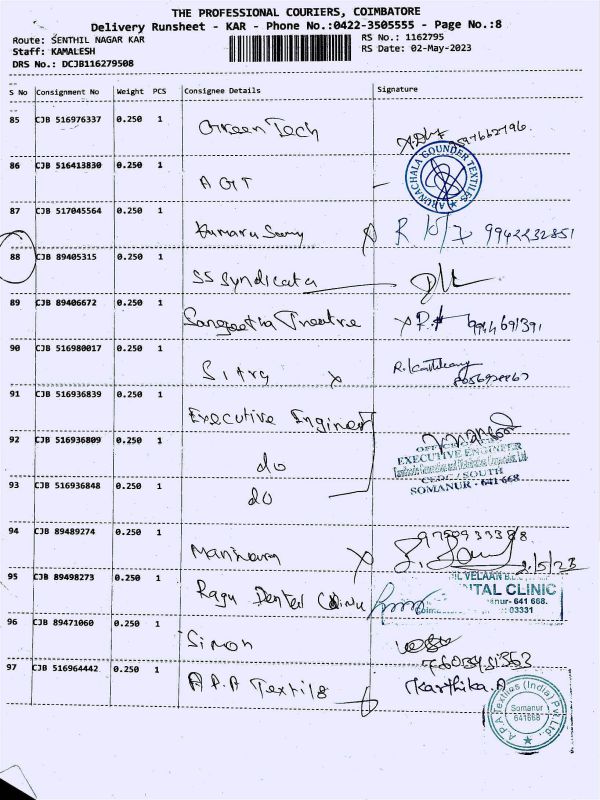 THE PROFESSIONAL COURIERS, COIMBATORE
Delivery Runsheet - KAR - Phone No.:0422-3505555 - Page No.:8
Route: SENTHIL NAGAR KAR RS No.: 1162795
Staff: KAMALESH RS Date: 02-May-2023
DRS No.: DCJB116279508
S No Consignment No Weight PCS Consignee Details Signature
85 CJB 516976337 0.250 1 Green Tech
86 CJB 516413830 0.250 1 AGT
ARUNACHALA GOUNDER TEXTILES
87 CJB 517045564 0.250 1 Kumaru Samy 9942232851
88 CJB 89405315 0.250 1 SS Syndicata
89 CJB 89406672 0.250 1 Sangeetha Theatre
90 CJB 516980017 0.250 1 Sitra
91 CJB 516936839 0.250 1 Executive Engineer
92 CJB 516936809 0.250 1 do
EXECUTIVE ENGINEER
93 CJB 516936848 0.250 1 do
SOMANUR - 641 668
94 CJB 89489274 0.250 1 2/5/23
95 CJB 89498273 0.250 1 Ragu Dental Clinic
VELAAN
TAL CLINIC
641 668.
03331
96 CJB 89471060 0.250 1 Simon
97 CJB 516964442 0.250 1 A.P.A Textils Karthika.A
A.P.A Textiles (India) Pvt. Ltd.,
Somanur
641668